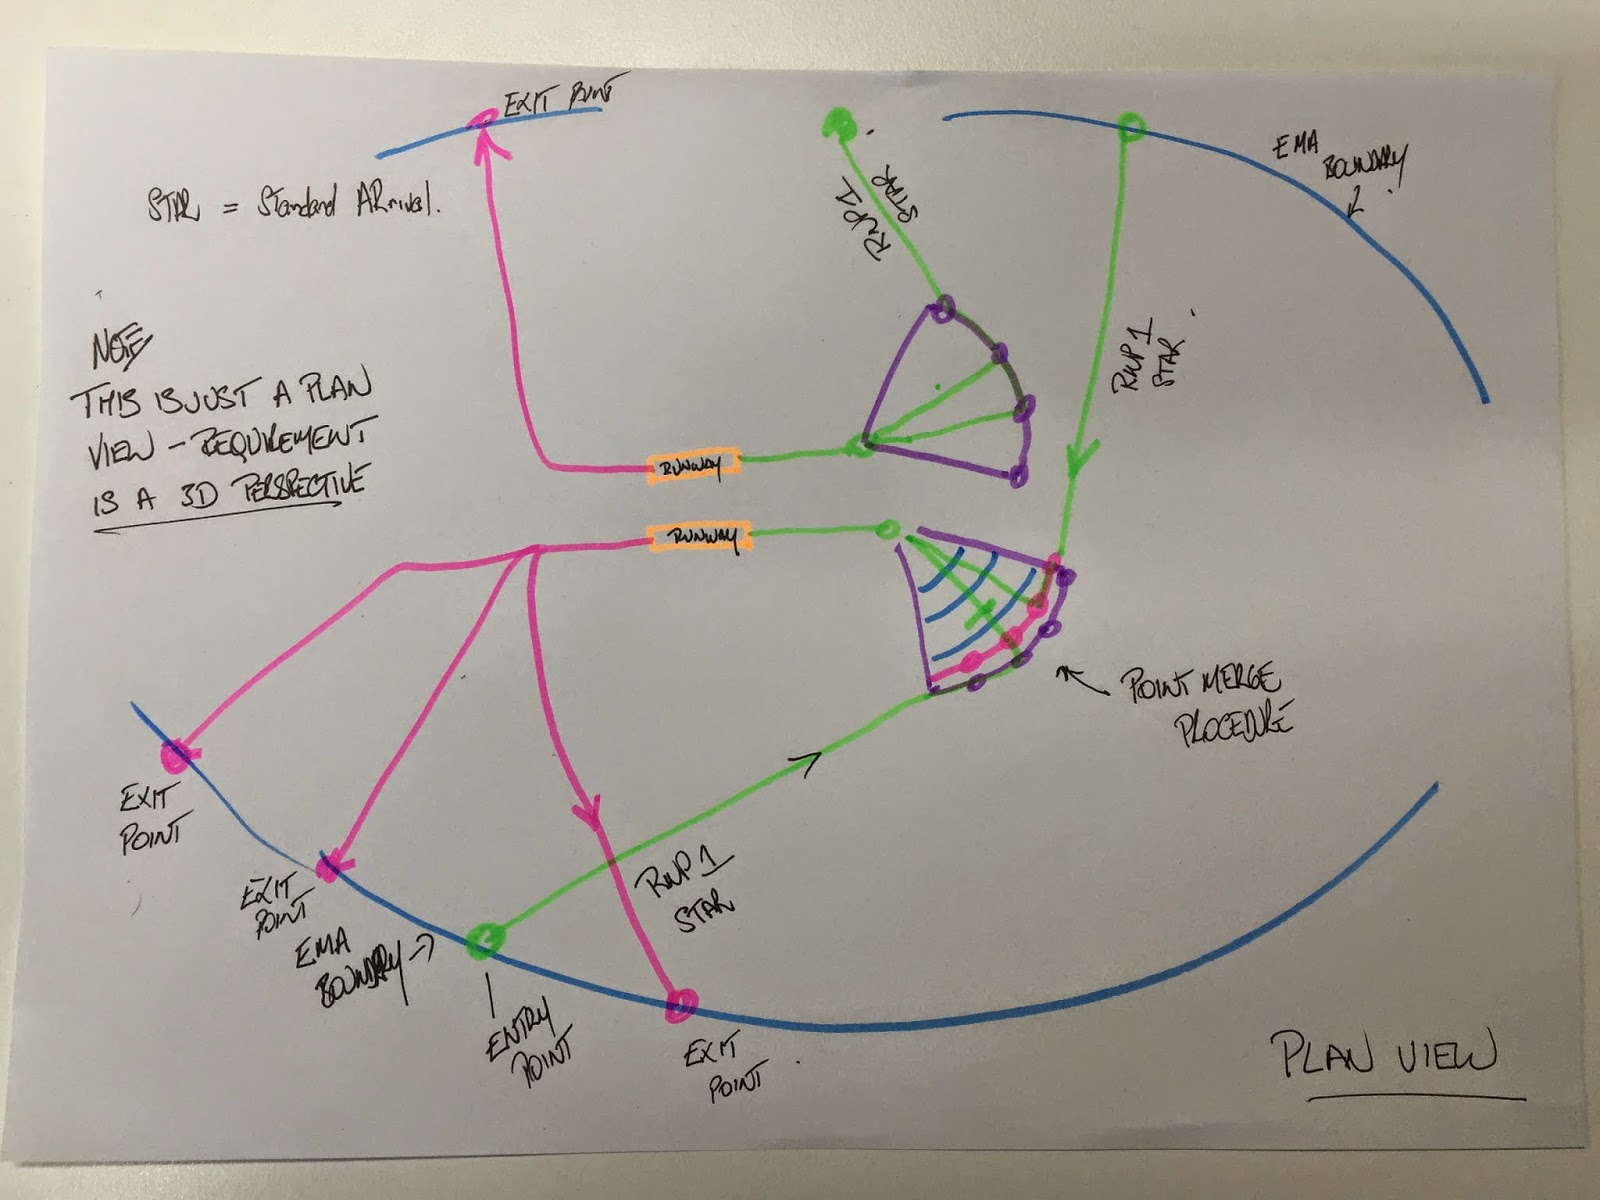 EXIT POINT
STAR = Standard ARrival.
NOTE
THIS IS JUST A PLAN
VIEW - REQUIREMENT
IS A 3D PERSPECTIVE
RNP1
STAR
EMA
BOUNDARY
RNP1
STAR
RUNWAY
RUNWAY
POINT MERGE
PROCEDURE
EXIT
POINT
EXIT
POINT
EMA
BOUNDARY
RNP1
STAR
ENTRY
POINT
EXIT
POINT
PLAN VIEW